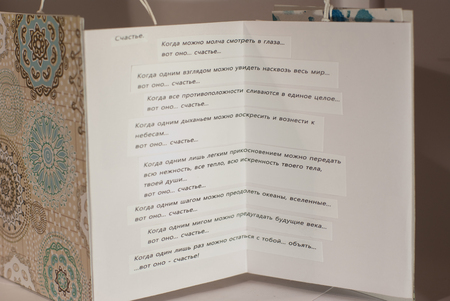 Счастье.
Когда можно молча смотреть в глаза...
вот оно... счастье...
Когда одним взглядом можно увидеть насквозь весь мир...
вот оно... счастье...
Когда все противоположности сливаются в единое целое...
вот оно... счастье...
Когда одним дыханьем можно воскресить и вознести к
небесам...
вот оно... счастье...
Когда одним лишь легким прикосновением можно передать
всю нежность, все тепло, всю искренность твоего тела,
твоей души...
вот оно... счастье...
Когда одним шагом можно преодолеть океаны, вселенные...
вот оно... счастье...
Когда одним мигом можно предугадать будущие века...
вот оно... счастье...
Когда один лишь раз можно остаться с тобой... объять...
...вот оно – счастье!